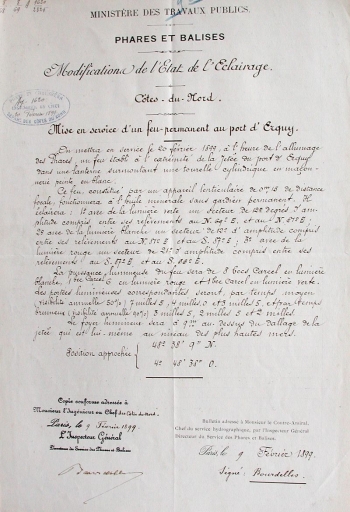 MINISTÈRE DES TRAVAUX PUBLICS.
PHARES ET BALISES
Modification de l'Etat de l'Eclairage.
Côtes-du-Nord.
Mise en service d'un feu permanent au port d'Erquy.
On mettra en service le 20 février 1899, à l'heure de l'allumage
des Phares, un feu établi à l'extrémité de la jetée du port d'Erquy
dans une lanterne surmontant une tourelle cylindrique en maçon-
nerie peinte en blanc.
Ce feu, constitué par un appareil lenticulaire de de distance
focale, fonctionnera à l'huile minérale sans gardien permanent. Il
éclairera: 1º avec de la lumière verte un secteur de d'am-
plitude compris entre ses relèvements au et au
2º avec de la lumière blanche un secteur de d'amplitude compris
entre ses relèvements au et au S. 57º E; 3º avec de la
lumière rouge un secteur de d'amplitude compris entre ses
relèvements au S. 57º E et au
La puissance lumineuse du feu sera de becs Carcel en lumière
blanche, bec Carcel 6 en lumière rouge et 1 bec Carcel en lumière verte.
Les portées lumineuses correspondantes seront, par temps moyen
(visibilité annuelle 50%) 7 milles 5, 4 milles 0 et 3 milles 5, et par temps
brumeux (visibilité annuelle 90%) 3 milles 5, 2 milles 5 et 2 milles.
Le foyer lumineux sera à au dessus du dallage de la
jetée qui est lui-même au niveau des plus hautes mers.
48º 38' 9" N.
Position approchée
4º 48' 38" O.
Copie conforme adressée à
Monsieur l'Ingénieur en Chef des Côtes du Nord.
Paris, le 9 Février 1899.
L'Inspecteur Général
Directeur du Service des Phares et Balises
Bourdelles
Bulletin adressé à Monsieur le Contre-Amiral,
Chef du service hydrographique, par l'Inspecteur Général
Directeur du Service des Phares et Balises.
Paris, le 9 Février 1899.
Signé Bourdelles